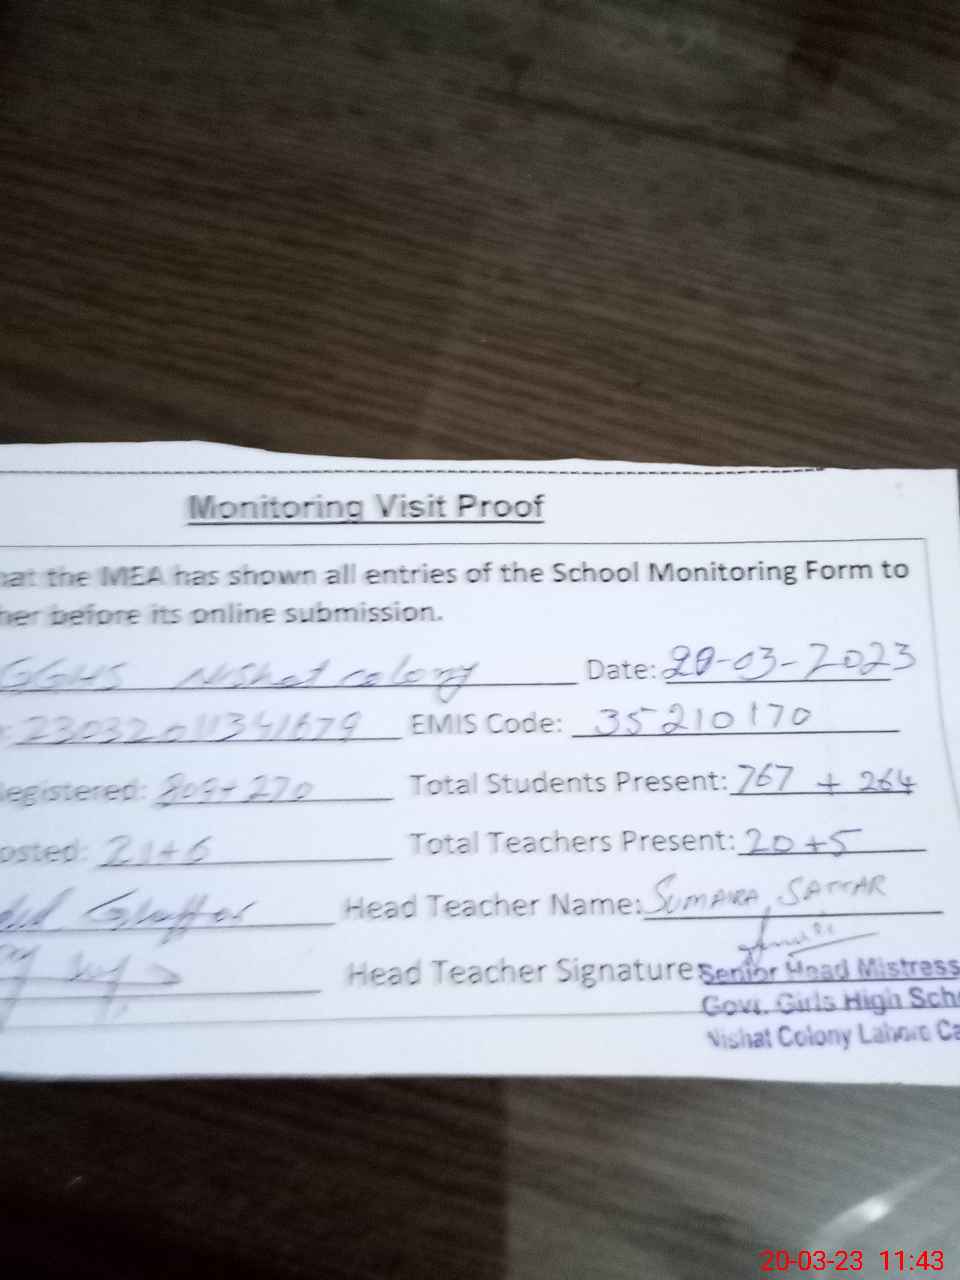 Monitoring Visit Proof
hat the MEA has shown all entries of the School Monitoring Form to
her before its online submission.
GGHS Nishat colony Date: 20-03-2023
: 23032011341679 EMIS Code: 35210170
egistered: 809+270 Total Students Present: 767 + 264
osted: 21+6 Total Teachers Present: 20+5
Head Teacher Name: SUMAIRA SATTAR
Head Teacher Signature
Senior Head Mistress
Govt. Girls High Sch
Nishat Colony Lahore Ca
20-03-23 11:43